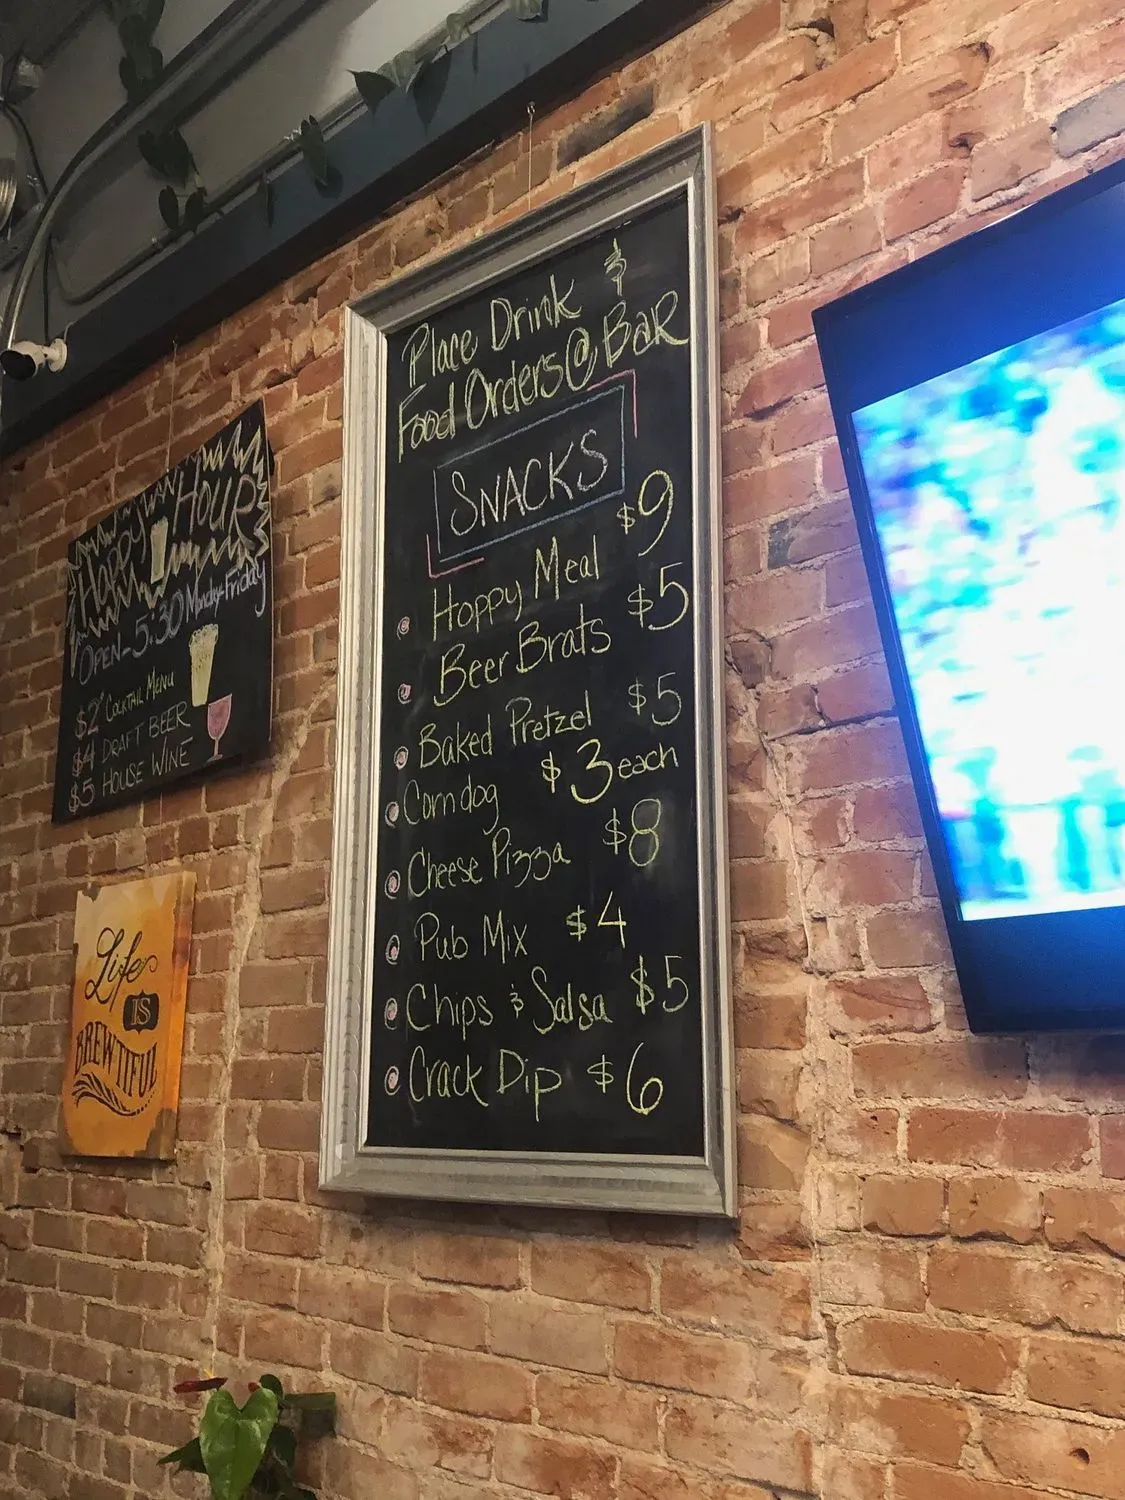 Place Drink &
Food Orders @ Bar
SNACKS
Hoppy Meal $9
Beer Brats $5
Baked Pretzel $5
Corndog $3 each
Cheese Pizza $8
Pub Mix $4
Chips & Salsa $5
Crack Dip $6
Happy Hour
OPEN-5:30 Monday-Friday
$2 Cocktail Menu
$4 DRAFT BEER
$5 HOUSE WINE
Life
IS
BREWTIFUL